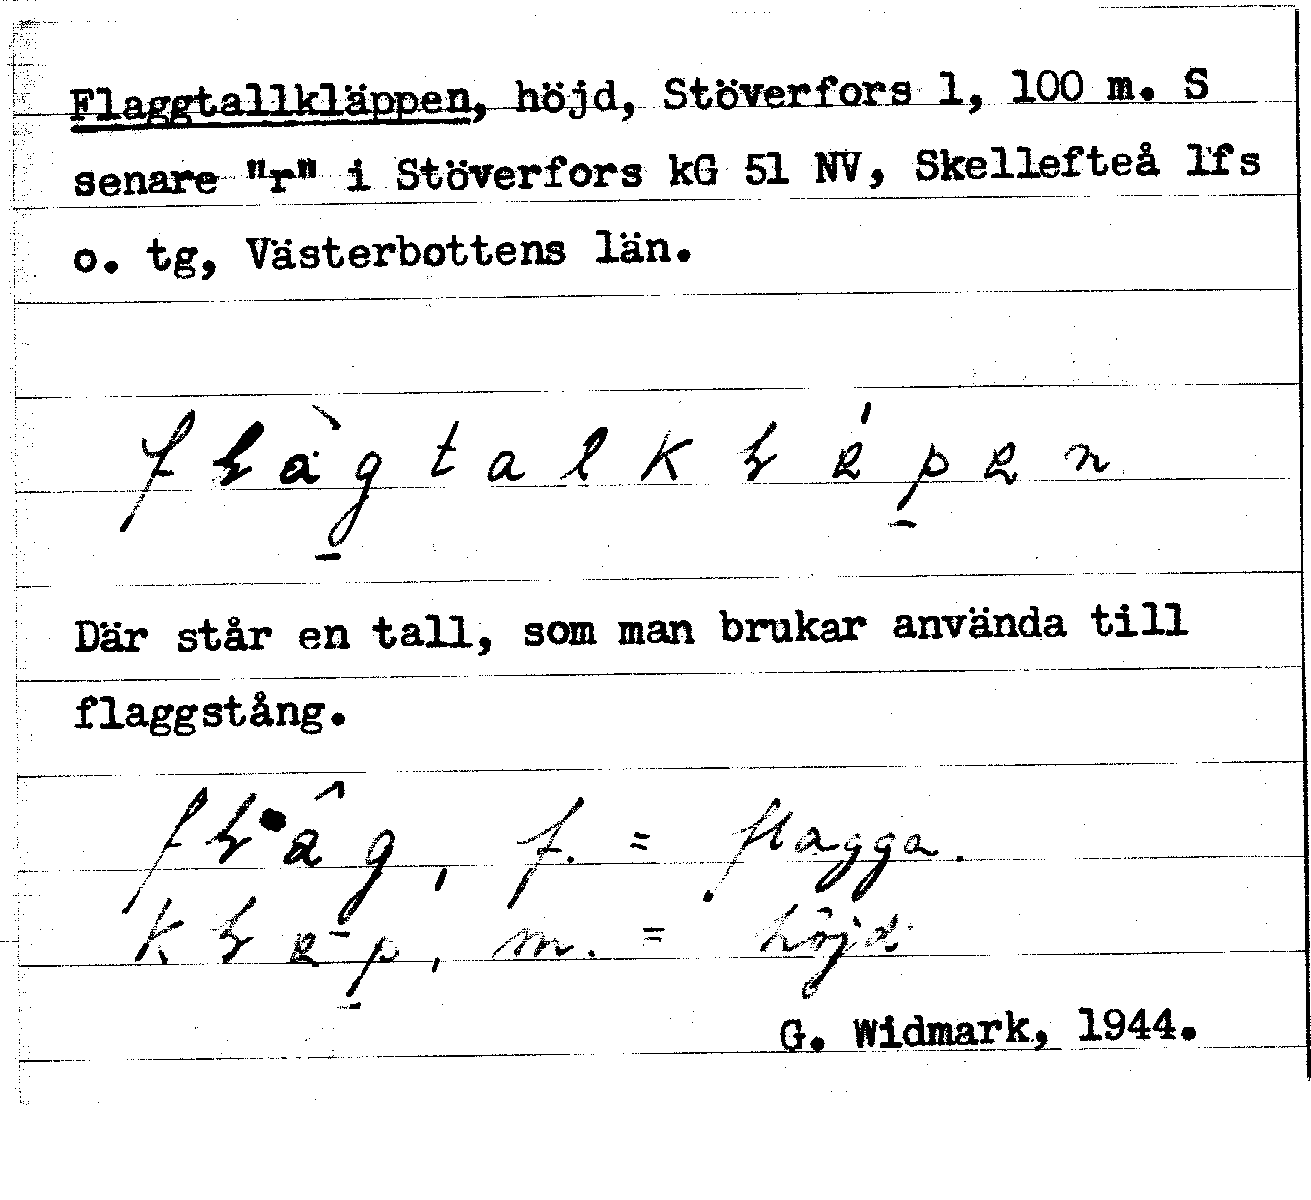 Flaggtallkläppen, höjd, Stöverfors 1, 100 m. S
senare "r" i Stöverfors kG 51 NV, Skellefteå lfs
o. tg, Västerbottens län.
Där står en tall, som man brukar använda till
flaggstång.
f. = flagga.
m. = höjd
G. Widmark, 1944.